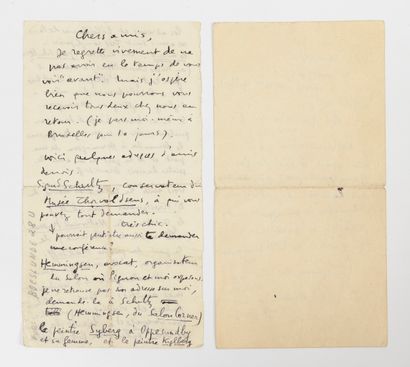 Chers amis,
Je regrette vivement de ne
pas avoir eu le temps de vous
voir "avant" mais j'espère
bien que nous pourrons vous
recevoir tous deux chez nous au
retour. (je pars moi-même à
Bruxelles pour 10 jours).
voici quelques adresses d'amis
danois.
Sigurd Schultz, conservateur du
Musée Thorvaldsens, à qui vous
pouvez tout demander.
très chic.
pourrait peut être aussi te demander
une conférence?
Hemmingsen, avocat, organisateur
du Salon où Lignon et moi exposons
je ne retrouve pas son adresse sur moi,
demande-la à Schultz
(Hemmingsen, du Salon Corner)
le peintre Syberg à Oppesundby
et sa femme, et le peintre